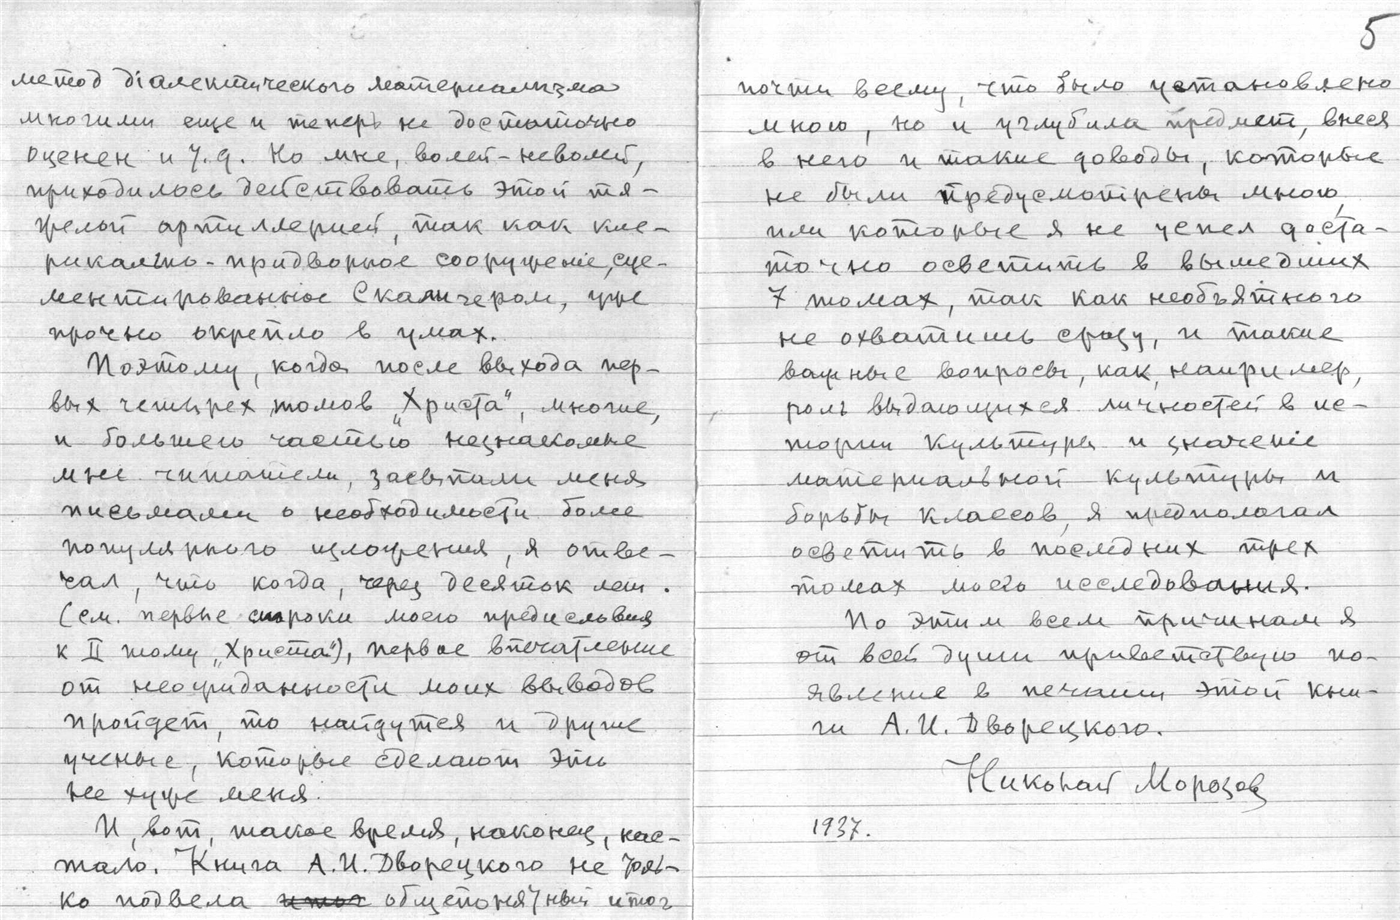 метод діалектического материализма
многими еще и теперь не достаточно
оценен и т.д. Но мне, волей-неволей,
приходилось действовать этой тя-
желой артиллерией, так как кле-
рикально-придворное сооружение, сце-
ментированное Скалигером, уже
прочно окрепло в умах.
Поэтому, когда после выхода пер-
вых четырех томов „Христа", многие,
и большею частью незнакомые
мне читатели, засыпали меня
письмами о необходимости более
популярного изложения, я отве-
чал, что когда, через десяток лет.
(см. первые строки моего предисловия
к II тому „Христа"), первое впечатление
от неожиданности моих выводов
пройдет, то найдутся и другие
ученые, которые сделают это
не хуже меня.
И, вот, такое время, наконец, нас-
тало. Книга А.И. Дворецкого не толь-
ко подвела итог общепонятный итог
5
почти всему, что было установлено
мною, но и углубила предмет, внеся
в него и такие доводы, которые
не были предусмотрены мною,
или которые я не успел доста-
точно осветить в вышедших
7 томах, так как необъятного
не охватишь сразу, и такие
важные вопросы, как, например,
роль выдающихся личностей в ис-
тории культуры и значеніе
материальной культуры и
борьбы классов, я предпологал
осветить в последних трех
томах моего исследования.
По этим всем причинам я
от всей души приветствую по-
явление в печати этой кни-
ги А.И. Дворецкого.
Николай Морозов
1937.